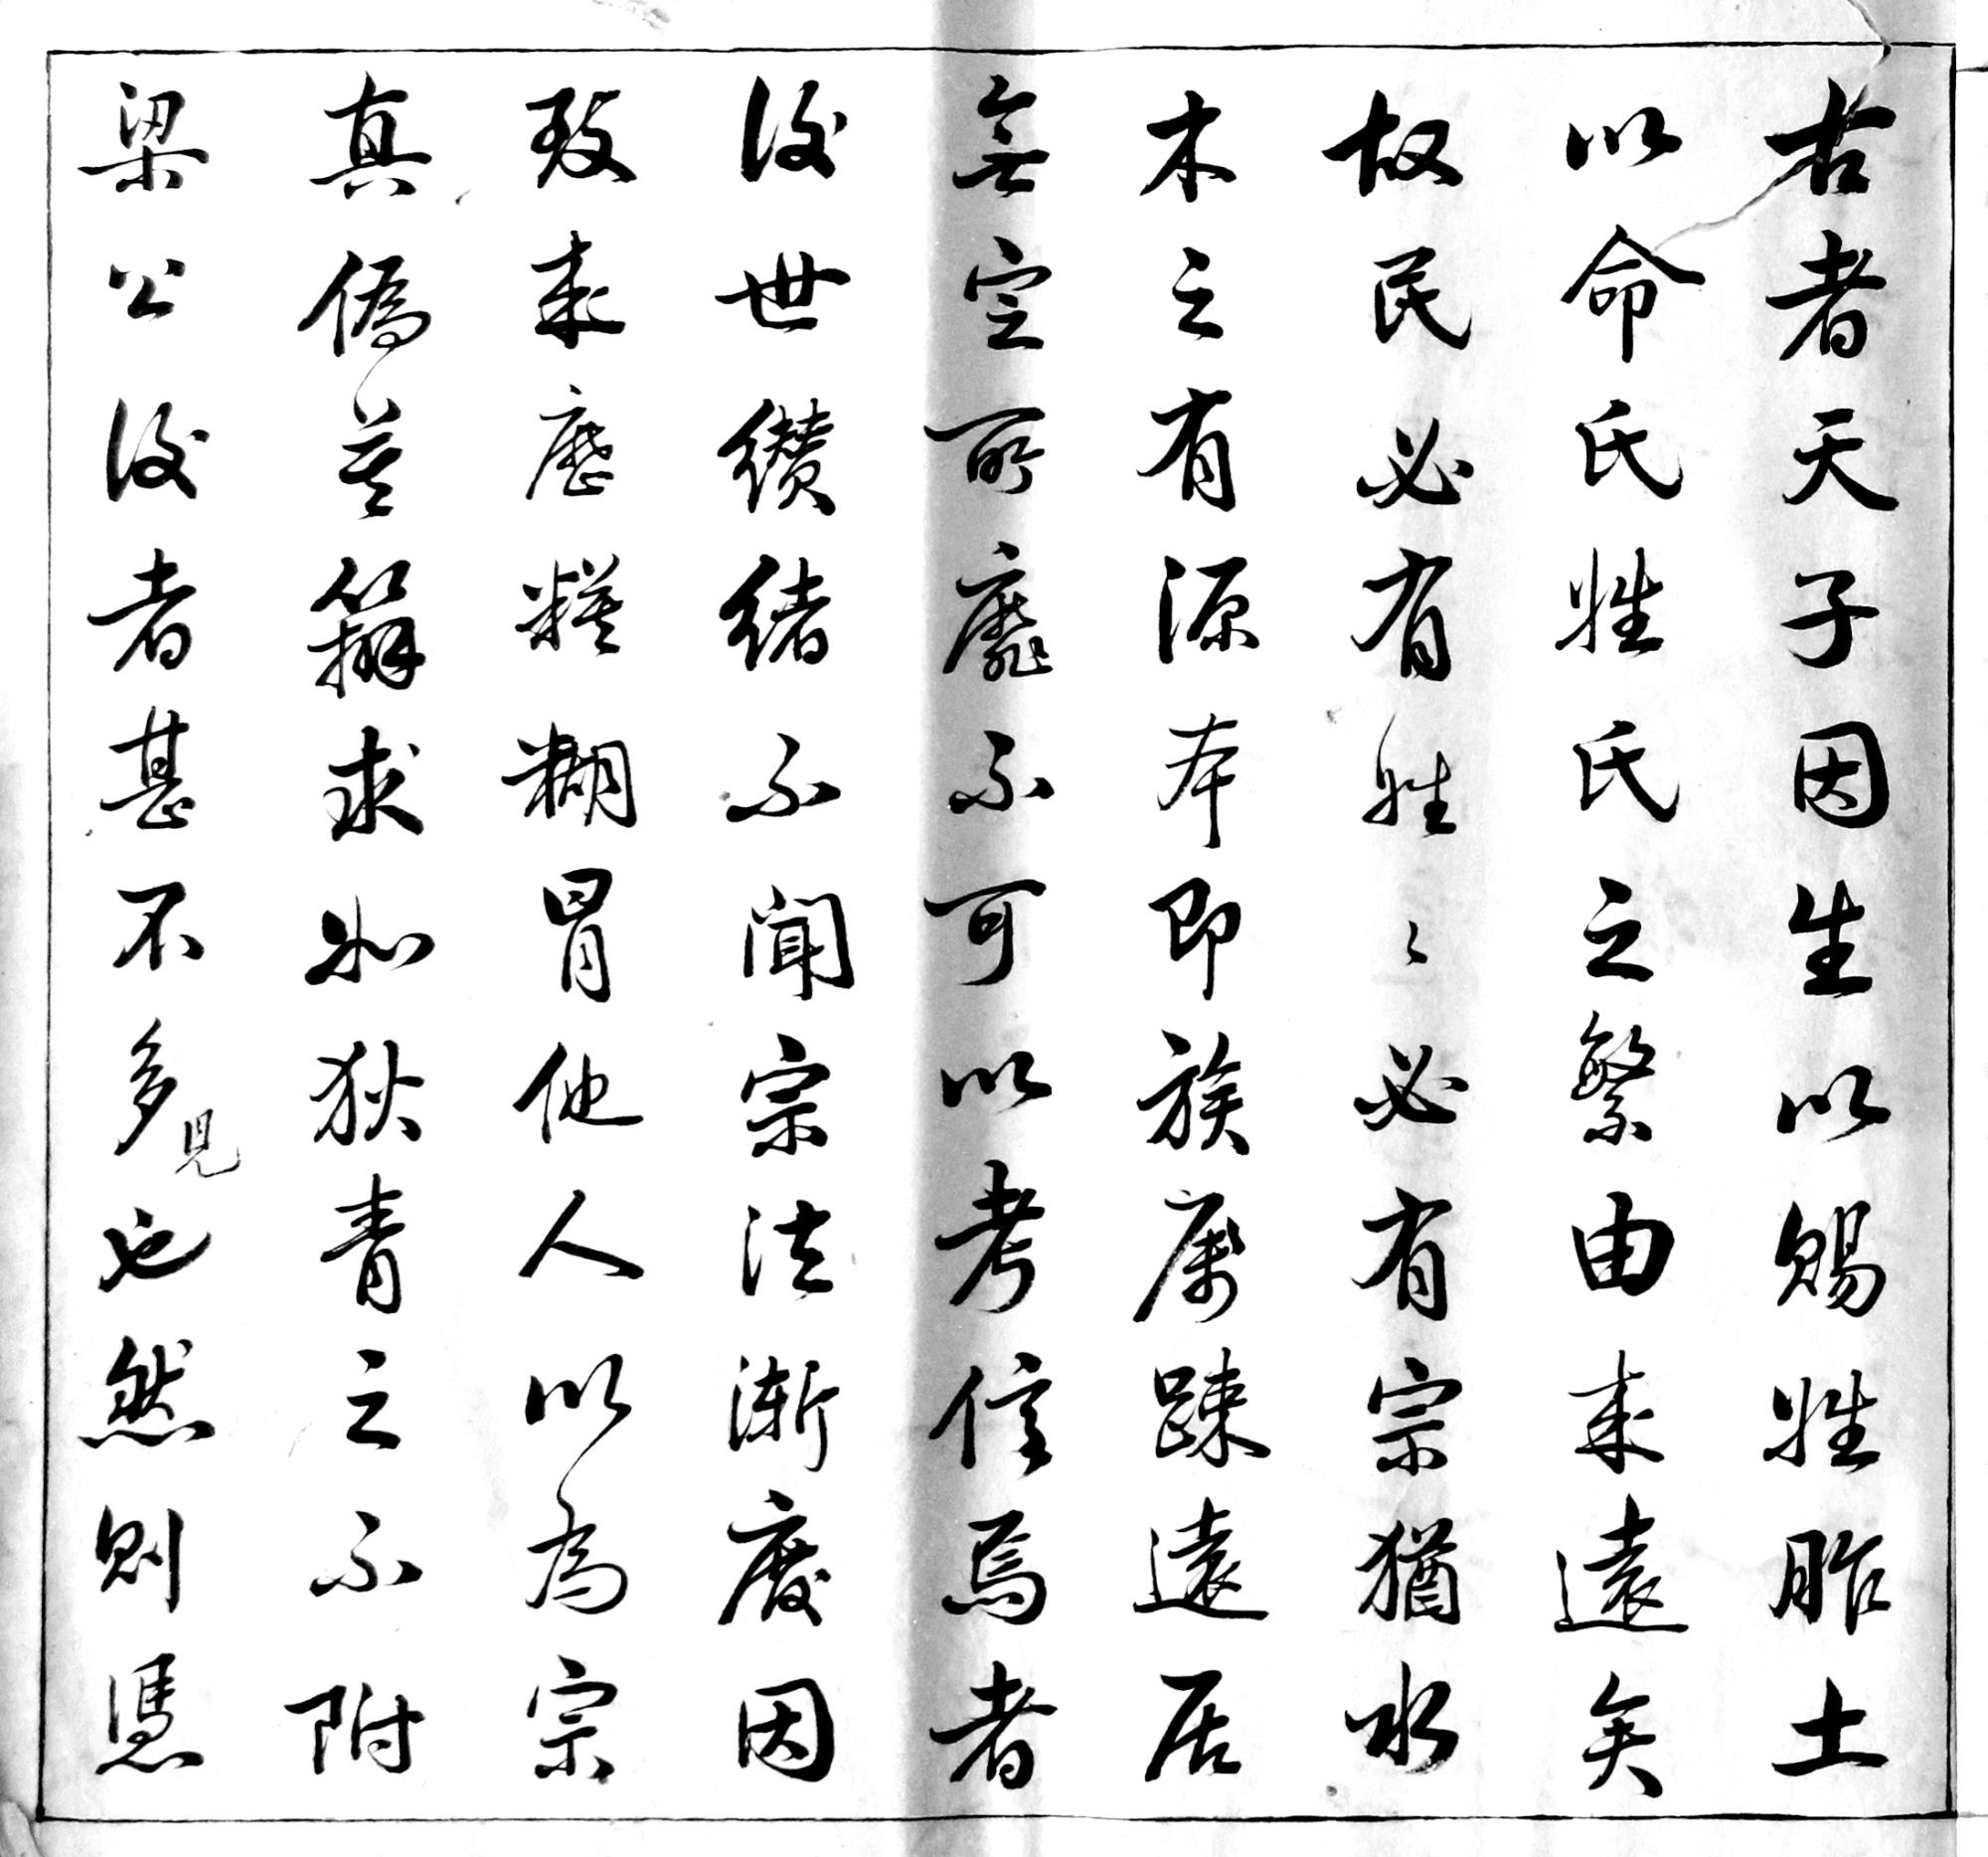 古者天子因生以賜姓胙土
以命氏姓氏之繁由来遠矣
故民必有姓〻必有宗猶水
木之有源本即族属踈遠居
無定所靡不可以考信焉者
後世纘緒不聞宗法漸廢因
致来歷糢糊冒他人以為宗
真偽莫辨求如狄青之不附
梁公後者甚不多見也然則憑